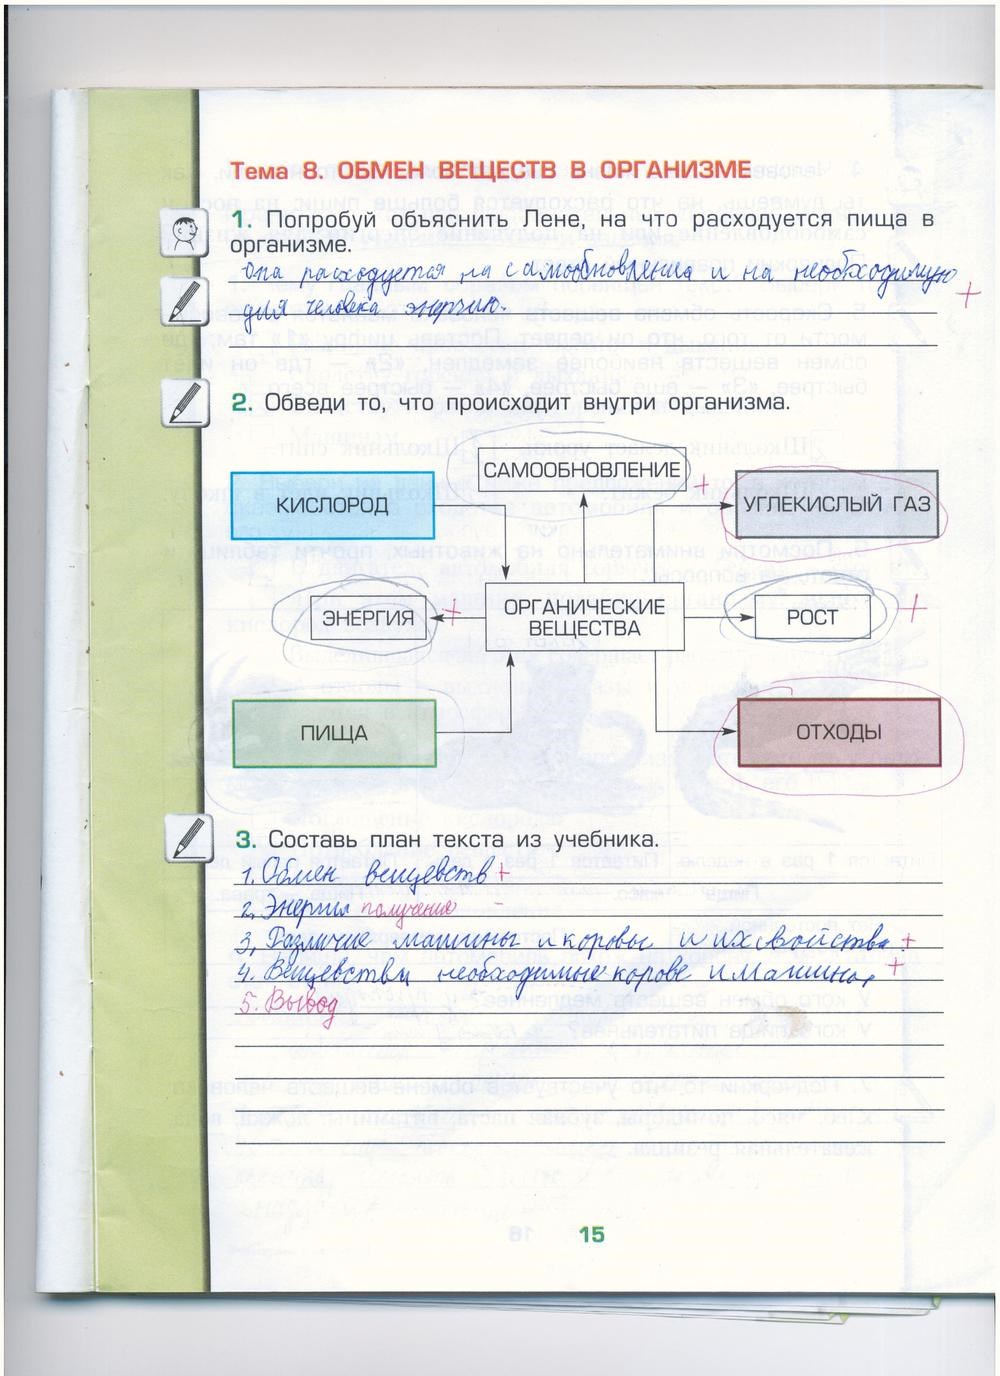 Тема 8. ОБМЕН ВЕЩЕСТВ В ОРГАНИЗМЕ
1. Попробуй объяснить Лене, на что расходуется пища в
организме.
Она расходуется на самообновление и на необходимую
для человека энергию. +
2. Обведи то, что происходит внутри организма.
САМООБНОВЛЕНИЕ +
КИСЛОРОД
УГЛЕКИСЛЫЙ ГАЗ
ЭНЕРГИЯ +
ОРГАНИЧЕСКИЕ
ВЕЩЕСТВА
РОСТ +
ПИЩА
ОТХОДЫ
3. Составь план текста из учебника.
1. Обмен вещевств +
2. Энергия получение –
3, Различие машины и коровы и их свойства. +
4. Вещевства необходимые корове и машине, +
5. Вывод
15